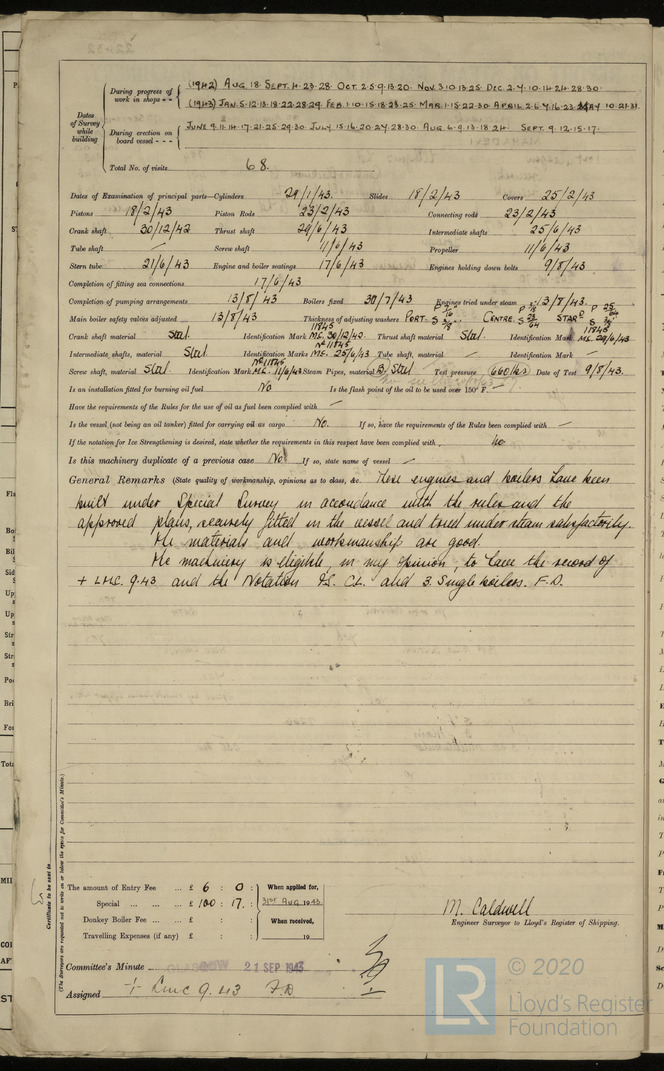 During progress of work in shops - - (1942) AUG 18. SEPT. 4. 23. 28. OCT. 2. 5. 9. 13. 20. NOV. 3. 10. 13. 25. DEC. 2. 4. 10. 14. 24. 28. 30.
(1943) JAN. 5. 12. 13. 18. 22. 28. 29. FEB. 1. 10. 15. 18. 23. 25. MAR. 1. 15. 22. 30. APRIL 2. 6. 7. 16. 23. MAY 10. 21. 31.
Dates of Survey while building
During erection on board vessel - - - JUNE 9. 11. 14. 17. 21. 25. 29. 30. JULY 15. 16. 20. 27. 28. 30. AUG. 6. 9. 13. 18. 24. SEPT. 9. 12. 15. 17.
Total No. of visits 68.
Dates of Examination of principal parts—Cylinders 29/1/43. Slides 18/2/43 Covers 25/2/43
Pistons 18/2/43 Piston Rods 23/2/43 Connecting rods 23/2/43
Crank shaft 30/12/42 Thrust shaft 29/6/43 Intermediate shafts 25/6/43
Tube shaft — Screw shaft 11/6/43 Propeller 11/6/43
Stern tube 21/6/43 Engine and boiler seatings 17/6/43 Engines holding down bolts 9/8/43
Completion of fitting sea connections 17/6/43
Completion of pumping arrangements 13/8/43 Boilers fixed 30/7/43 Engines tried under steam 13/8/43.
Main boiler safety valves adjusted 13/8/43 Thickness of adjusting washers PORT CENTRE STARD
Crank shaft material Steel Identification Mark 11845 M.C. 30/12/42. Thrust shaft material Steel Identification Mark 11845 M.C. 29/6/43
Intermediate shafts, material Steel Identification Marks No 11845 M.C. 25/6/43 Tube shaft, material — Identification Mark —
Screw shaft, material Steel Identification Mark No 11845 M.C. 11/6/43 Steam Pipes, material Steel Test pressure 660 lbs Date of Test 9/8/43.
Is an installation fitted for burning oil fuel No Is the flash point of the oil to be used over 150° F. —
Have the requirements of the Rules for the use of oil as fuel been complied with —
Is the vessel (not being an oil tanker) fitted for carrying oil as cargo No. If so, have the requirements of the Rules been complied with —
If the notation for Ice Strengthening is desired, state whether the requirements in this respect have been complied with, no
Is this machinery duplicate of a previous case No If so, state name of vessel —
General Remarks (State quality of workmanship, opinions as to class, &c. These engines and boilers have been
built under Special Survey in accordance with the rules and the
approved plans, securely fitted in the vessel and tried under steam satisfactorily.
The materials and workmanship are good.
The machinery is eligible, in my opinion, to have the record of
+ LMC. 9.43 and the Notation T.S. CL. and 3. Single boilers. F.D.
(The Surveyors are requested not to write on or below the space for Committee's Minute.)
Certificate to be sent to
The amount of Entry Fee ... £ 6 : 0 : When applied for,
Special ... ... £ 100 : 17. : 31ST AUG 1943.
Donkey Boiler Fee ... £ : : When received,
Travelling Expenses (if any) £ : : 19
M. Caldwell
Engineer Surveyor to Lloyd's Register of Shipping.
Committee's Minute GLASGOW 21 SEP 1943
Assigned + Lmc 9.43 F.D
LR © 2020
Lloyd's Register
Foundation